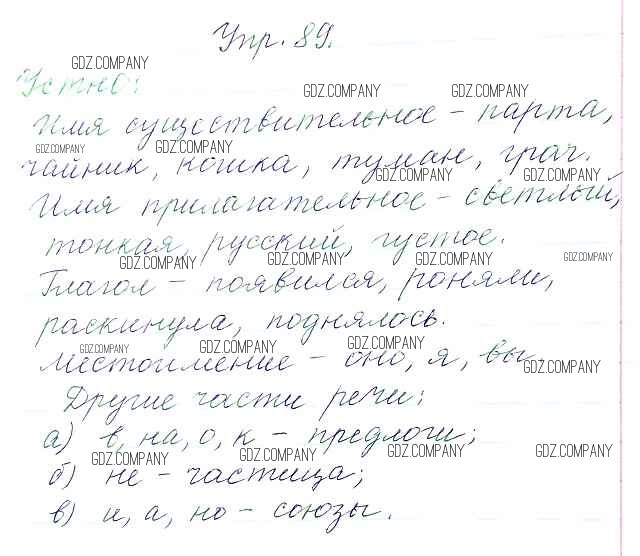 Упр. 89.
GDZ.COMPANY
Устно:
GDZ.COMPANY GDZ.COMPANY
Имя существительное - парта,
GDZ.COMPANY GDZ.COMPANY
чайник, кошка, туман, грач.
GDZ.COMPANY GDZ.COMPANY
Имя прилагательное - светлый,
тонкая, русский, густое.
GDZ.COMPANY GDZ.COMPANY GDZ.COMPANY GDZ.COMPANY
Глагол - появился, роняли,
раскинула, поднялось.
GDZ.COMPANY GDZ.COMPANY GDZ.COMPANY
Местоимение - оно, я, вы
GDZ.COMPANY
Другие части речи:
а) в, на, о, к - предлоги;
GDZ.COMPANY GDZ.COMPANY GDZ.COMPANY GDZ.COMPANY
б) не - частица;
в) и, а, но - союзы.